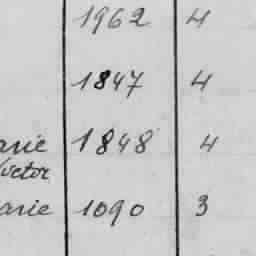 1962 4
1847 4
arie 1848 4
Victor
arie 1090 3